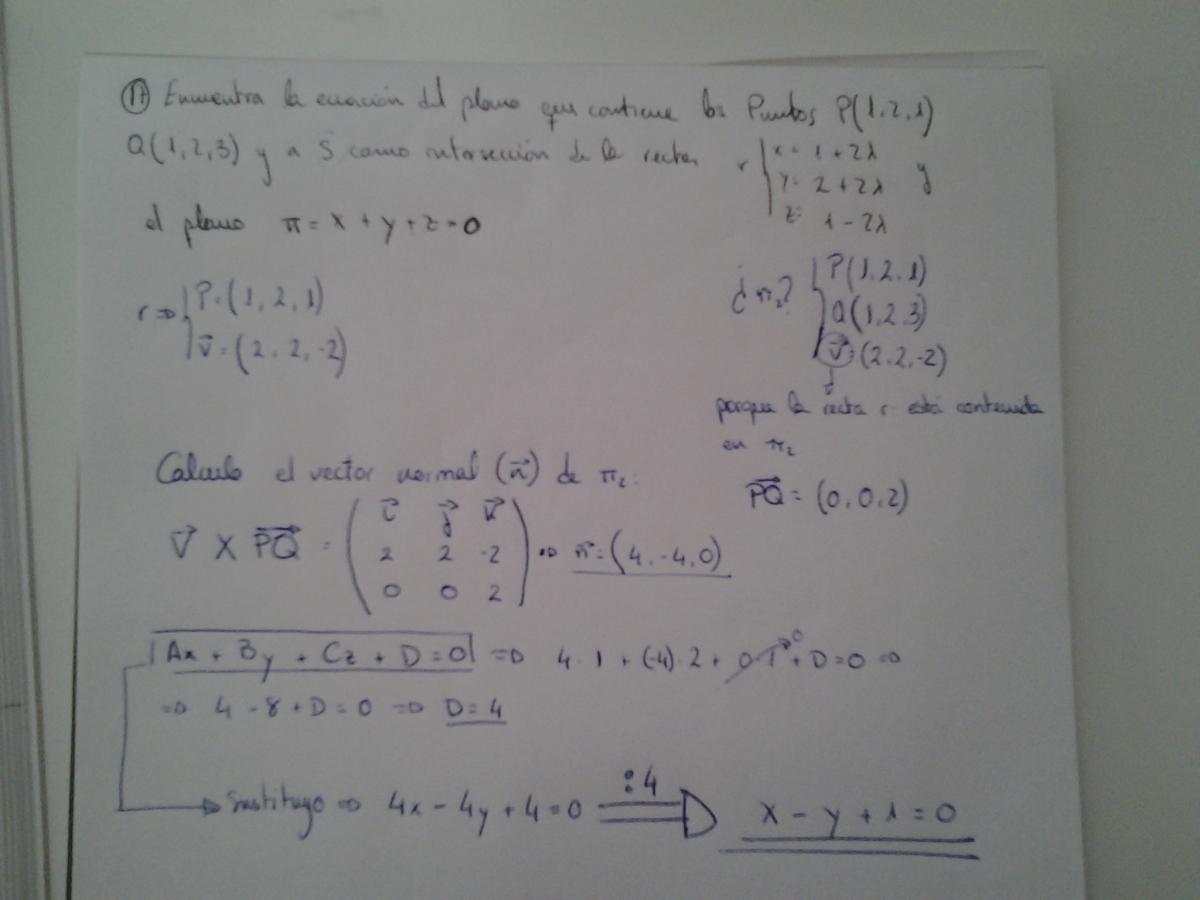 17 Encuentra la ecuación del plano que contiene los Puntos P(1,2,1)
Q(1,2,3) y a S como intersección de la recta r { x = 1 + 2λ
y = 2 + 2λ y
z = 1 - 2λ
el plano π = x + y + z = 0
r ⇒ { P = (1, 2, 1)
v⃗ = (2, 2, -2)
¿π₂? { P(1,2,1)
Q(1,2,3)
v⃗ = (2,2,-2)
porque la recta r está contenida
en π₂
PQ⃗ = (0,0,2)
Calculo el vector normal (n⃗) de π₂:
v⃗ X PQ⃗ = ( i⃗ j⃗ k⃗
2 2 -2
0 0 2 ) ⇒ n⃗ = (4, -4, 0)
Ax + By + Cz + D = 0 ⇒ 4·1 + (-4)·2 + 0·1 → 0 + D = 0 ⇒
⇒ 4 - 8 + D = 0 ⇒ D = 4
Sustituyo ⇒ 4x - 4y + 4 = 0 :4 ⇒ x - y + 1 = 0